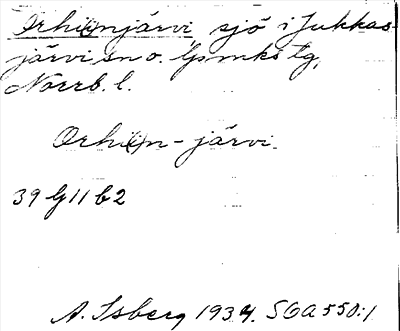 Orhi(i)njärvi sjö i Jukkas-
järvi sn o. Gsmks tg,
Norrb. l.
Orhi(i)n-järvi.
39 G 11 b 2
A. Isberg 1934. SOA 550:1